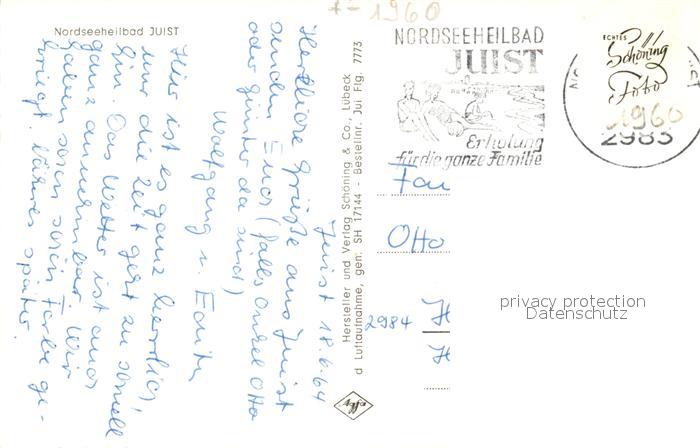 Nordseeheilbad JUIST
Juist 18.6.64
Herzliche Grüße aus Juist
senden Euch (falls Onkel Otto
oder Günter da sind)
Wolfgang u. Edith
Hier ist es ganz herrlich,
nur die Zeit geht zu schnell
hin. Das Wetter ist auch
ganz annehmbar. Wir
haben schon schön Farbe ge-
kriegt. Näheres später.
Hersteller und Verlag Schöning & Co., Lübeck
d Luftaufnahme, gen: SH 17144 - Bestellnr. Jui Flg. 7773
Agfa
1960
NORDSEEHEILBAD
JUIST
Erholung
für die ganze Familie
ECHTES
Schöning
Foto
1960
2983
Fam
Otto
2984 H
H
privacy protection
Datenschutz